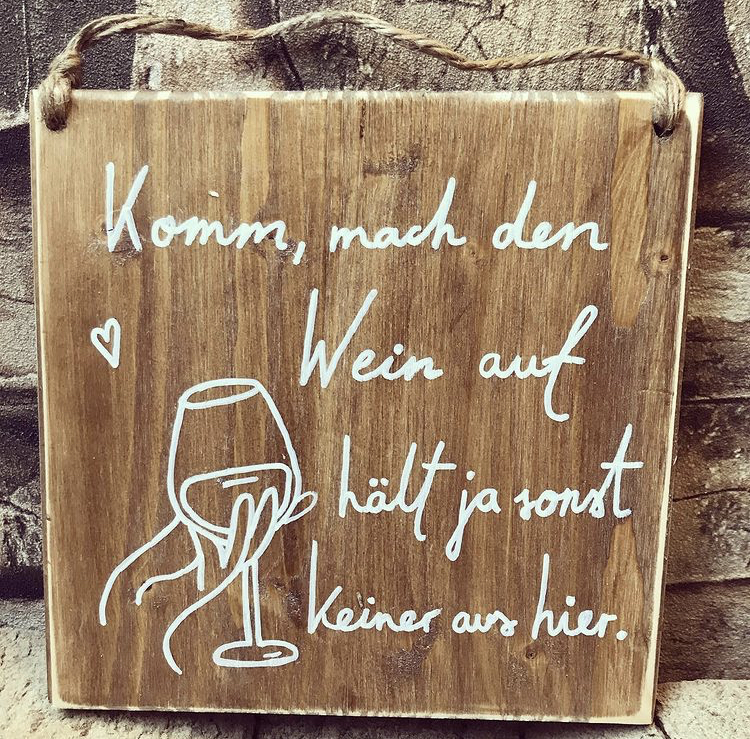 Komm, mach den
Wein auf
hält ja sonst
keiner aus hier.